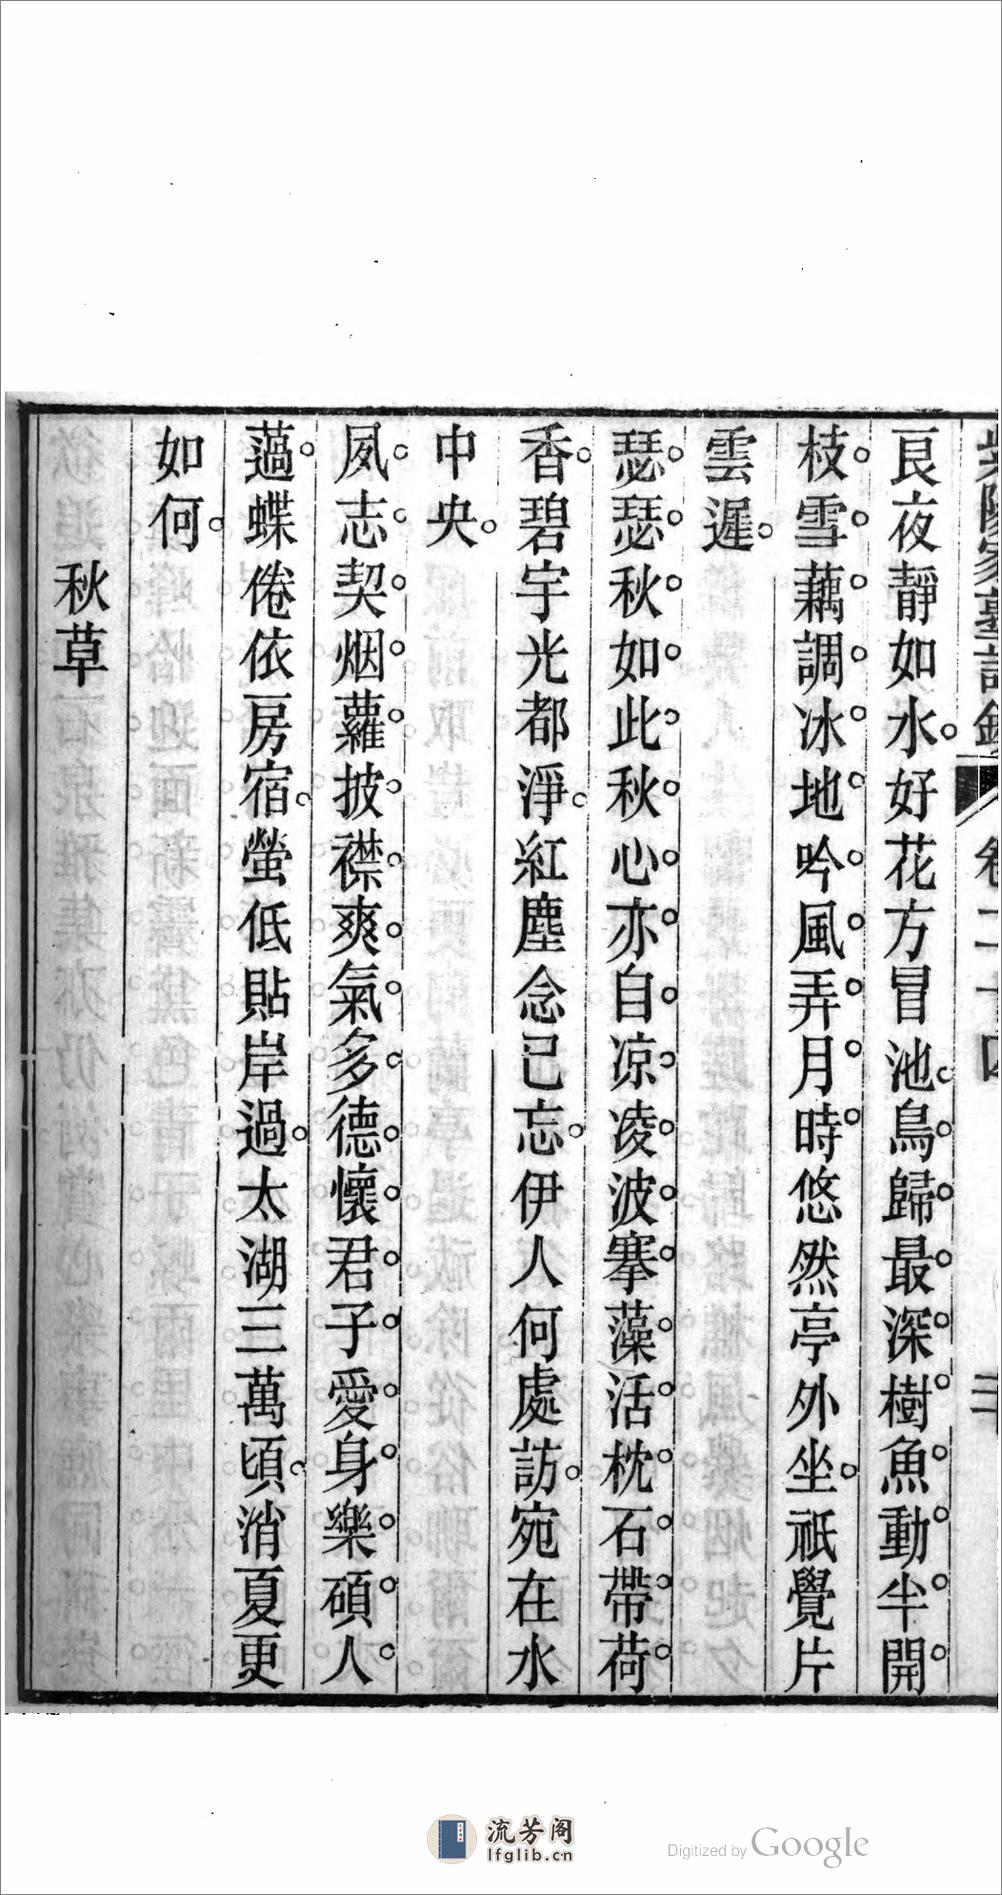 紫陽家塾詩鈔 卷二十四 三
良夜靜如水好花方冒池鳥歸最深樹魚動半開
枝雪藕調冰地吟風弄月時悠然亭外坐祇覺片
雲遲
瑟瑟秋如此秋心亦自涼凌波搴藻活枕石帶荷
香碧宇光都淨紅塵念已忘伊人何處訪宛在水
中央
夙志契烟蘿披襟爽氣多德懷君子愛身樂碩人
薖蝶倦依房宿螢低貼岸過太湖三萬頃消夏更
如何
秋草
流芳阁
lfglib.cn
Digitized by Google